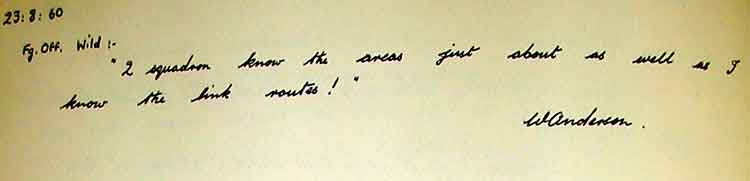 23:8:60
Fg. Off. Wild :-
"2 squadron know the areas just about as well as I
know the link routes!"
WAnderson.